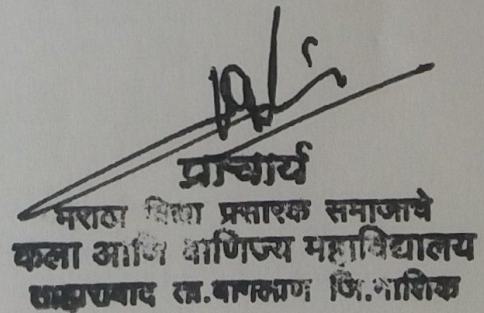 प्राचार्य
मराठा विद्या प्रसारक समाजाचे
कला आणि वाणिज्य महाविद्यालय
ता.बागलाण जि.नाशिक